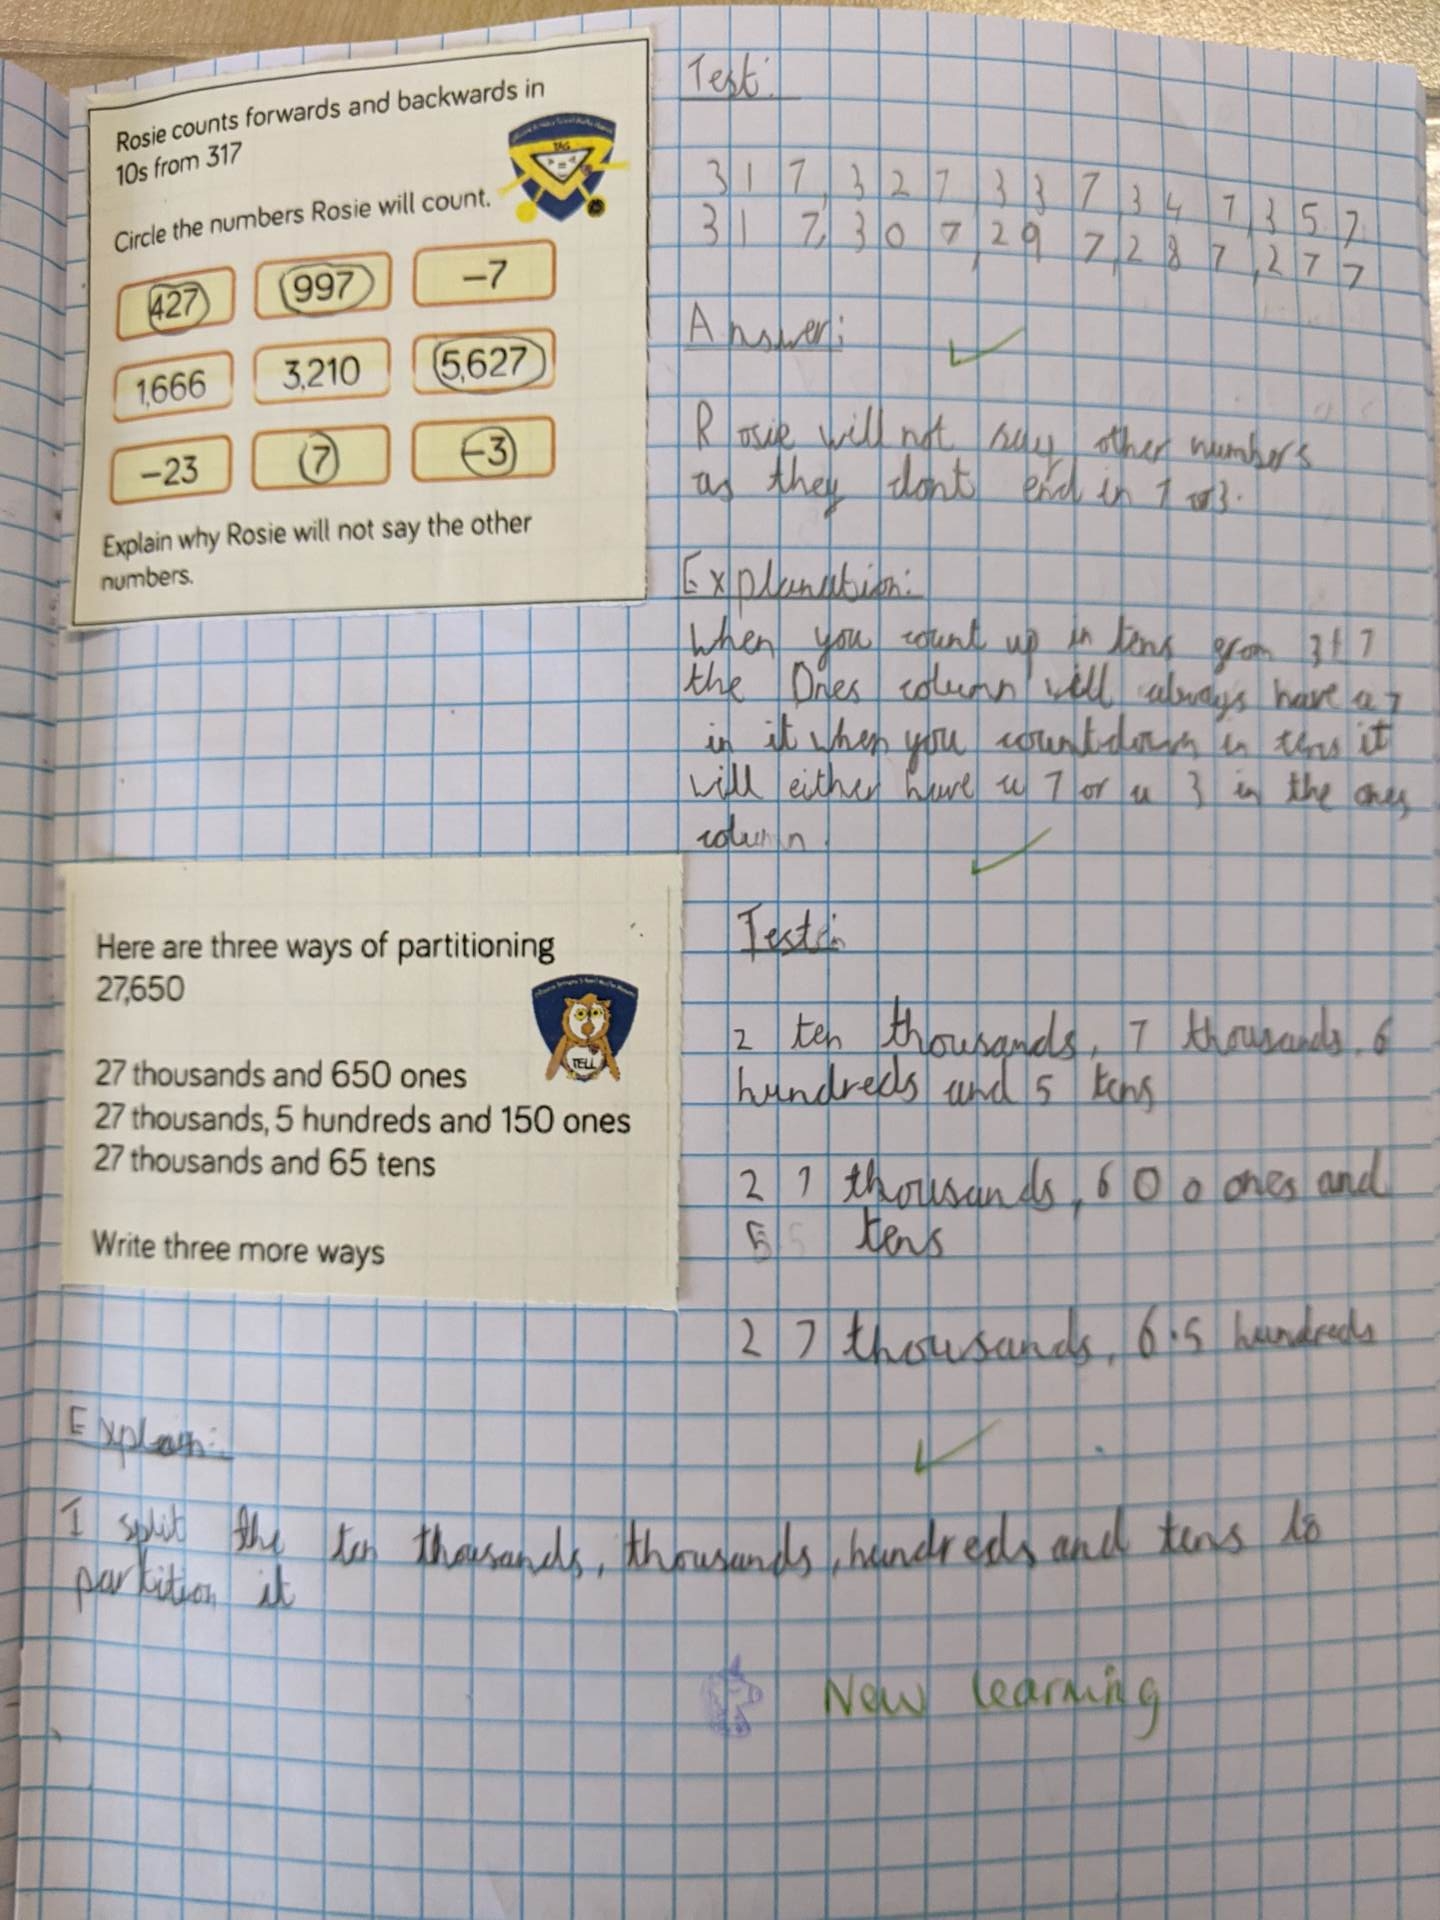 Rosie counts forwards and backwards in
10s from 317
Circle the numbers Rosie will count.
427 997 –7
1,666 3,210 5,627
–23 7 –3
Explain why Rosie will not say the other
numbers.
TAG
Test:
317, 327, 337, 347, 357
317, 307, 297, 287, 277
Answer:
Rosie will not say other numbers
as they dont end in 7 or 3.
Explanation:
When you count up in tens from 317
the Ones column will always have a 7
in it when you count down in tens it
will either have a 7 or a 3 in the ones
column.
Here are three ways of partitioning
27,650
27 thousands and 650 ones
27 thousands, 5 hundreds and 150 ones
27 thousands and 65 tens
Write three more ways
TELL
Test:
2 ten thousands, 7 thousands, 6
hundreds and 5 tens
27 thousands, 600 ones and
5 tens
27 thousands, 6.5 hundreds
Explain:
I split the ten thousands, thousands, hundreds and tens to
partition it
New learning